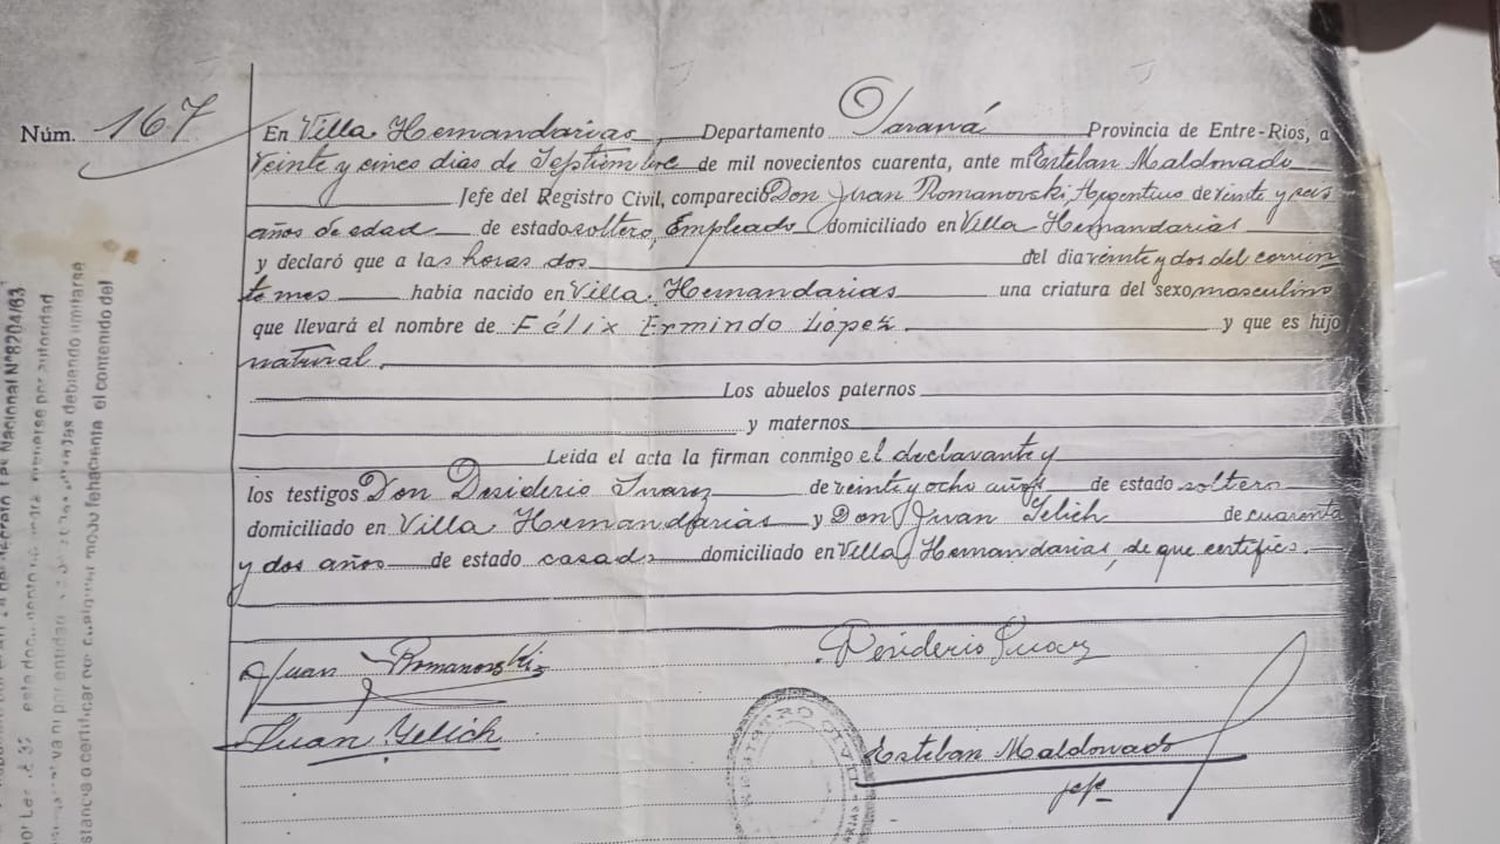 Núm. 167
En Villa Hernandarias Departamento Paraná Provincia de Entre-Rios, a
veinte y cinco dias de Septiembre de mil novecientos cuarenta, ante mi Esteban Maldonado
Jefe del Registro Civil, compareció Don Juan Romanovski, Argentino de veinte y seis
años de edad de estado soltero, Empleado domiciliado en Villa Hernandarias
y declaró que a las horas dos del dia veinte y dos del corrien
te mes había nacido en Villa Hernandarias una criatura del sexo masculino
que llevará el nombre de Félix Ermindo López. y que es hijo
natural.
Los abuelos paternos
y maternos
Leida el acta la firman conmigo el declarante y
los testigos Don Desiderio Suarez de veinte y ocho años de estado soltero
domiciliado en Villa Hernandarias y Don Juan Jelich de cuarenta
y dos años de estado casado domiciliado en Villa Hernandarias, de que certifico.
Juan Romanovski
Desiderio Suarez
Juan Jelich
Esteban Maldonado
jefe
REGISTRO CIVIL
Nacional Nº 8204/63
por autoridad
debiendo limitarse
stancia o certificar por cualquier modo fehaciente el contenido del